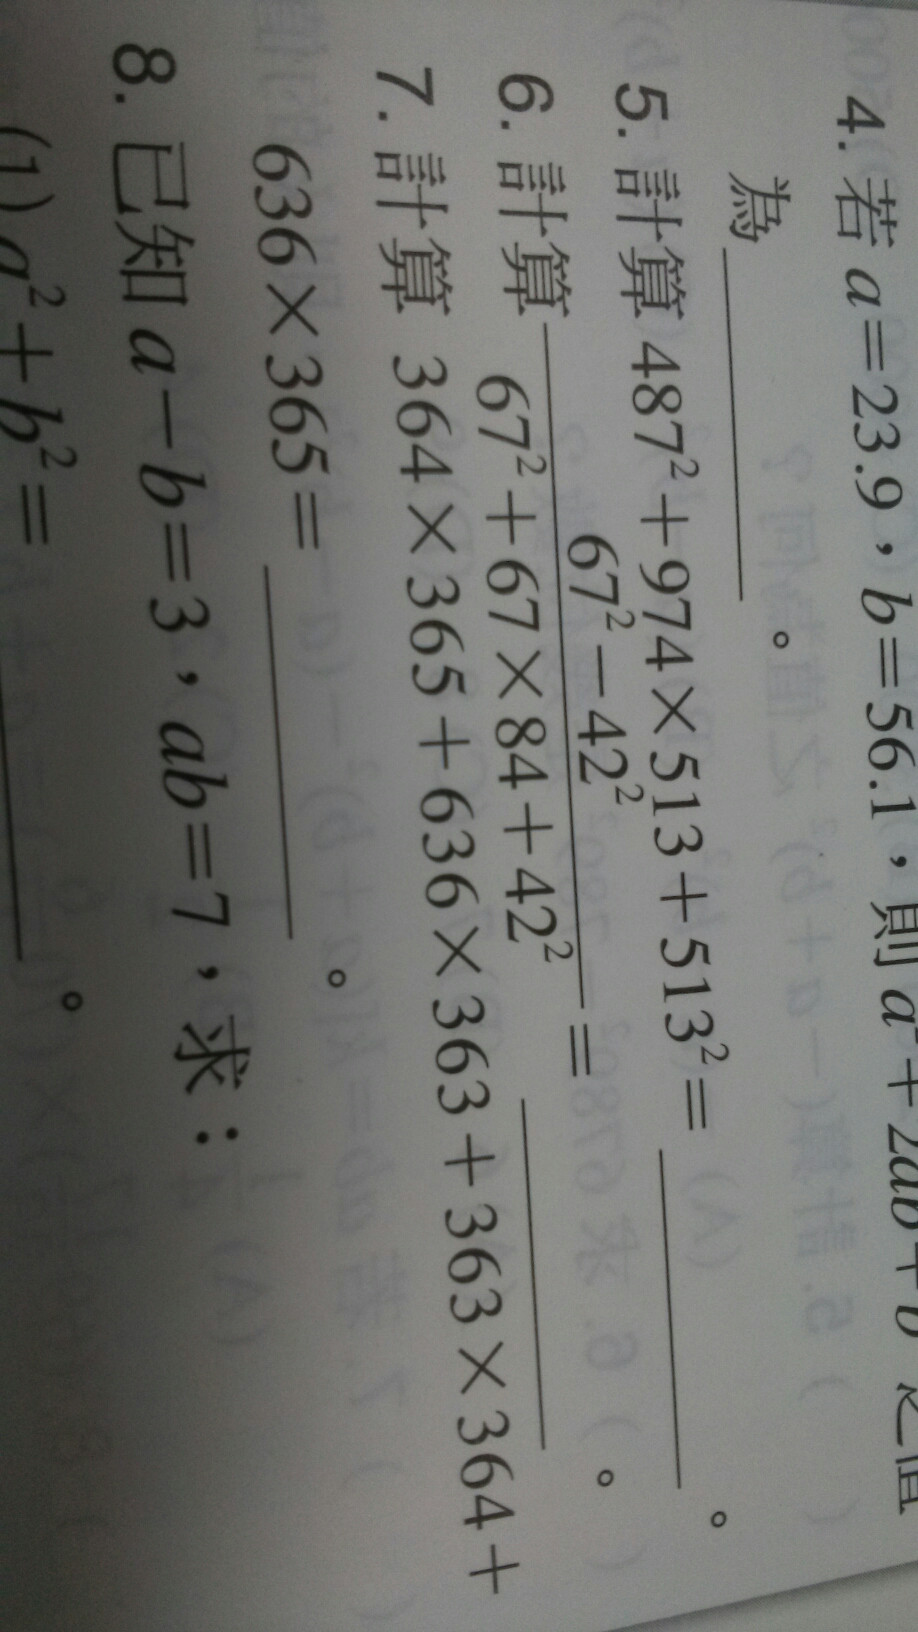 4. 若 a=23.9，b=56.1，則 a²+2ab+b² 之值
為＿＿＿＿。
5. 計算 487²+974×513+513²=＿＿＿＿。
6. 計算 (67²-42²)/(67²+67×84+42²)=＿＿＿＿。
7. 計算 364×365+636×363+363×364+
636×365=＿＿＿＿。
8. 已知 a-b=3，ab=7，求：
(1) a²+b²=＿＿＿＿。